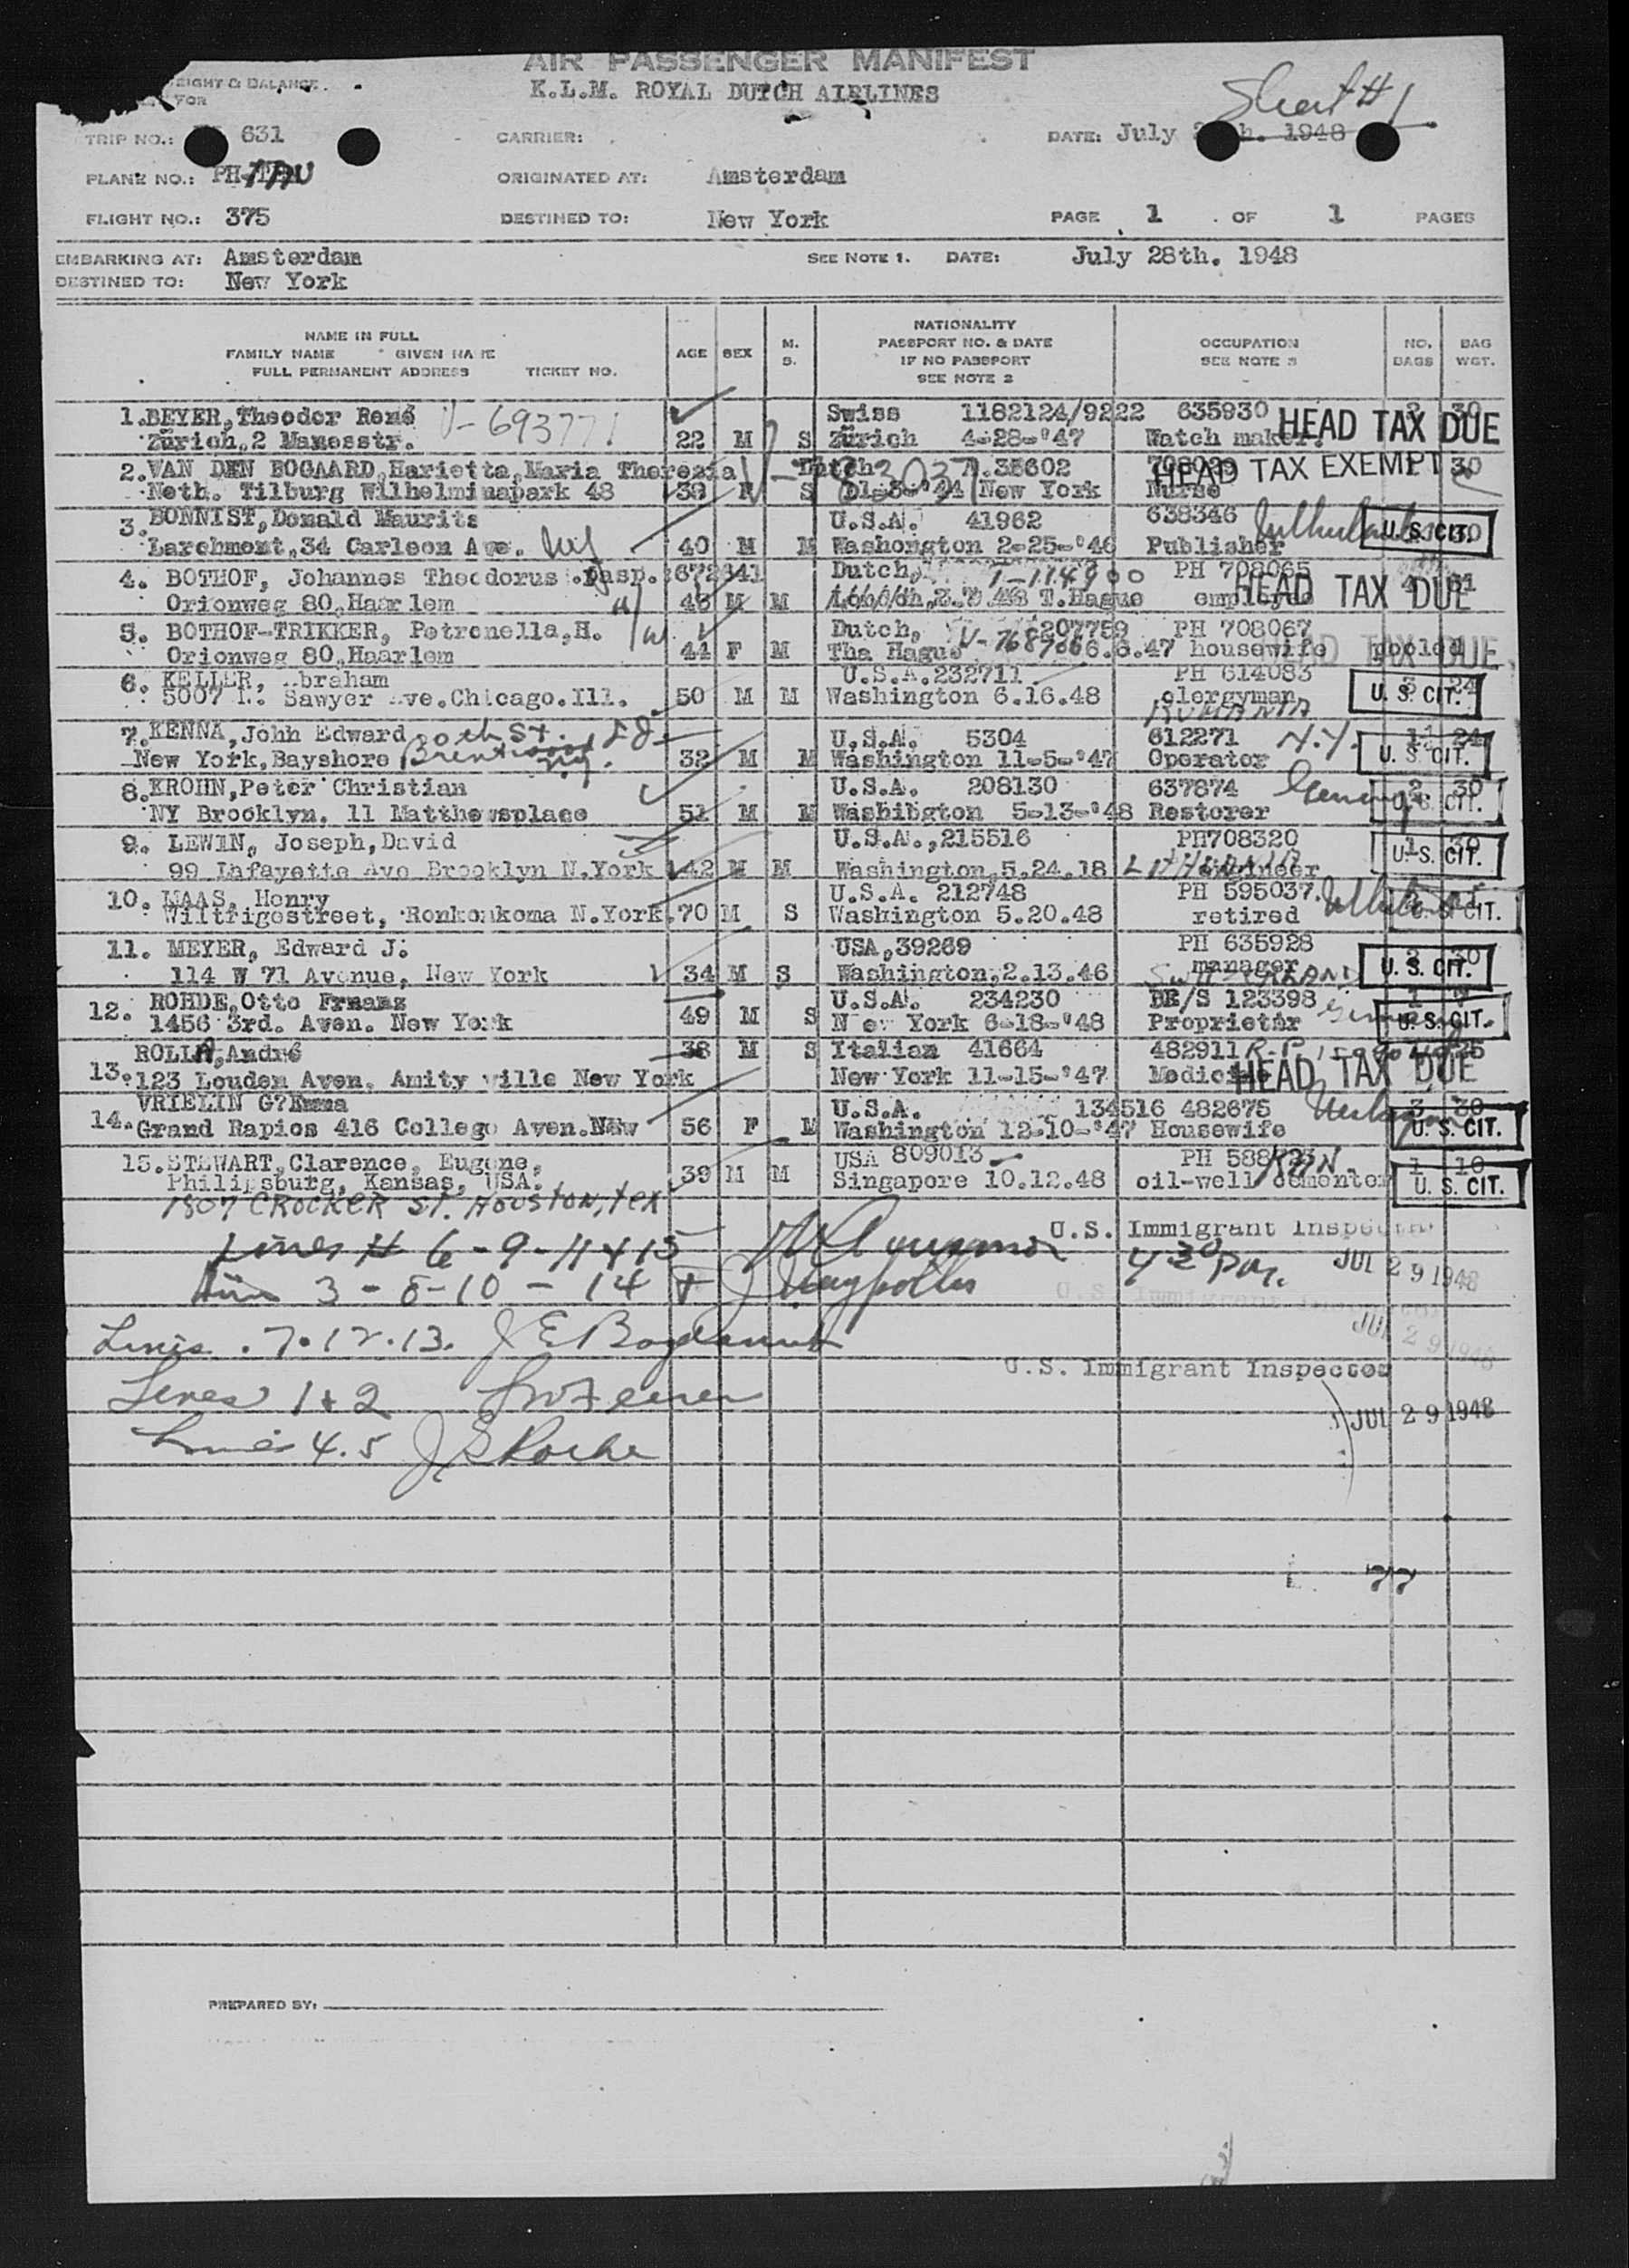 AIR PASSENGER MANIFEST
EIGHT & BALANCE
FOR
K.L.M. ROYAL DUTCH AIRLINES
Sheet # 1
TRIP NO.: 631 CARRIER: DATE: July h. 1948
PLANE NO.: PH-TAU ORIGINATED AT: Amsterdam
FLIGHT NO.: 375 DESTINED TO: New York PAGE 1 OF 1 PAGES
EMBARKING AT: Amsterdam SEE NOTE 1. DATE: July 28th. 1948
DESTINED TO: New York
NAME IN FULL
FAMILY NAME GIVEN NAME
FULL PERMANENT ADDRESS TICKET NO.
AGE SEX M. S.
NATIONALITY
PASSPORT NO. & DATE
IF NO PASSPORT
SEE NOTE 2
OCCUPATION
SEE NOTE 3
NO. BAGS
BAG WGT.
1.BEYER,Theodor René V-693771 Swiss 1182124/9222 635930 2 30
Zürich,2 Manesstr. 22 M S Zürich 4-28-'47 Watch maker. HEAD TAX DUE
2.VAN DEN BOGAARD,Harietta,Maria Theresia Dutch 35602 30
Neth. Tilburg Wilhelminapark 48 39 F S New York Nurse HEAD TAX EXEMPT
3.BONNIST,Donald Maurits U.S.A. 41962 638346
Larchmont,34 Carleon Ave. NY 40 M M Washongton 2-25-'46 Publisher U.S. CIT.
4. BOTHOF, Johannes Theodorus pasp.:672341 Dutch, PH 708065
Orionweg 80,Haarlem 48 M M T.Hague employee HEAD TAX DUE
5. BOTHOF-TRIKKER, Petronella,H. Dutch, 207759 PH 708067
Orionweg 80,Haarlem 44 F M The Hague V-768706 6.6.47 housewife pooled HEAD TAX DUE
6. KELLER, Abraham U.S.A.232711 PH 614083
5007 N. Sawyer Ave.Chicago.Ill. 50 M M Washington 6.16.48 clergyman 3 24 U. S. CIT.
RUMANIA
7.KENNA,John Edward U.S.A. 5304 612271 N.Y. 24
New York,Bayshore Brentwood N.Y. 32 M M Washington 11-5-'47 Operator U. S. CIT.
8.KROHN,Peter Christian U.S.A. 208130 637874 Germany 2 30
NY Brooklyn. 11 Matthewsplace 51 M M Washibgton 5-13-'48 Restorer U. S. CIT.
9. LEWIN, Joseph,David U.S.A.,215516 PH708320 1 30
99 Lafayette Ave Brooklyn N.York 42 M M Washington,5.24.18 LITHUANIA engineer U. S. CIT.
10. MAAS, Henry U.S.A. 212748 PH 595037.
Wiltrigestreet, Ronkonkoma N.York. 70 M S Washington 5.20.48 retired U. S. CIT.
11. MEYER, Edward J. USA,39269 PH 635928
114 W 71 Avenue, New York 34 M S Washington,2.13.46 manager 2 30 U. S. CIT.
SWITZERLAND
12. ROHDE,Otto Frnans U.S.A. 234230 BR/S 123398 Germany
1456 3rd. Aven. New York 49 M S New York 6-18-'48 Proprietár U. S. CIT.
ROLLA,André 38 M S Italian 41664 482911 R.P.
13.123 Louden Aven. Amity ville New York New York 11-15-'47 Medicine HEAD TAX DUE
VRIELIN G?Emma U.S.A. 134516 482675 3 30
14.Grand Rapios 416 College Aven.New 56 F M Washington 12-10-'47 Housewife U. S. CIT.
15.STEWART,Clarence, Eugene, USA 809013 PH 588723 KAN 1 10
Philipsburg, Kansas, USA. 39 M M Singapore 10.12.48 oil-well cementer U. S. CIT.
1807 CROCKER ST. HOUSTON, TEX
U.S. Immigrant Inspector
Lines # 6-9-11 & 15 4 30 P.M. JUL 29 1948
Lines 3-8-10-14 U.S. Immigrant Inspector
JUL 29 1948
Lines . 7.12.13.
U.S. Immigrant Inspector
Lines 1 & 2 JUL 29 1948
Lines 4.5 J S Roche
77
PREPARED BY: